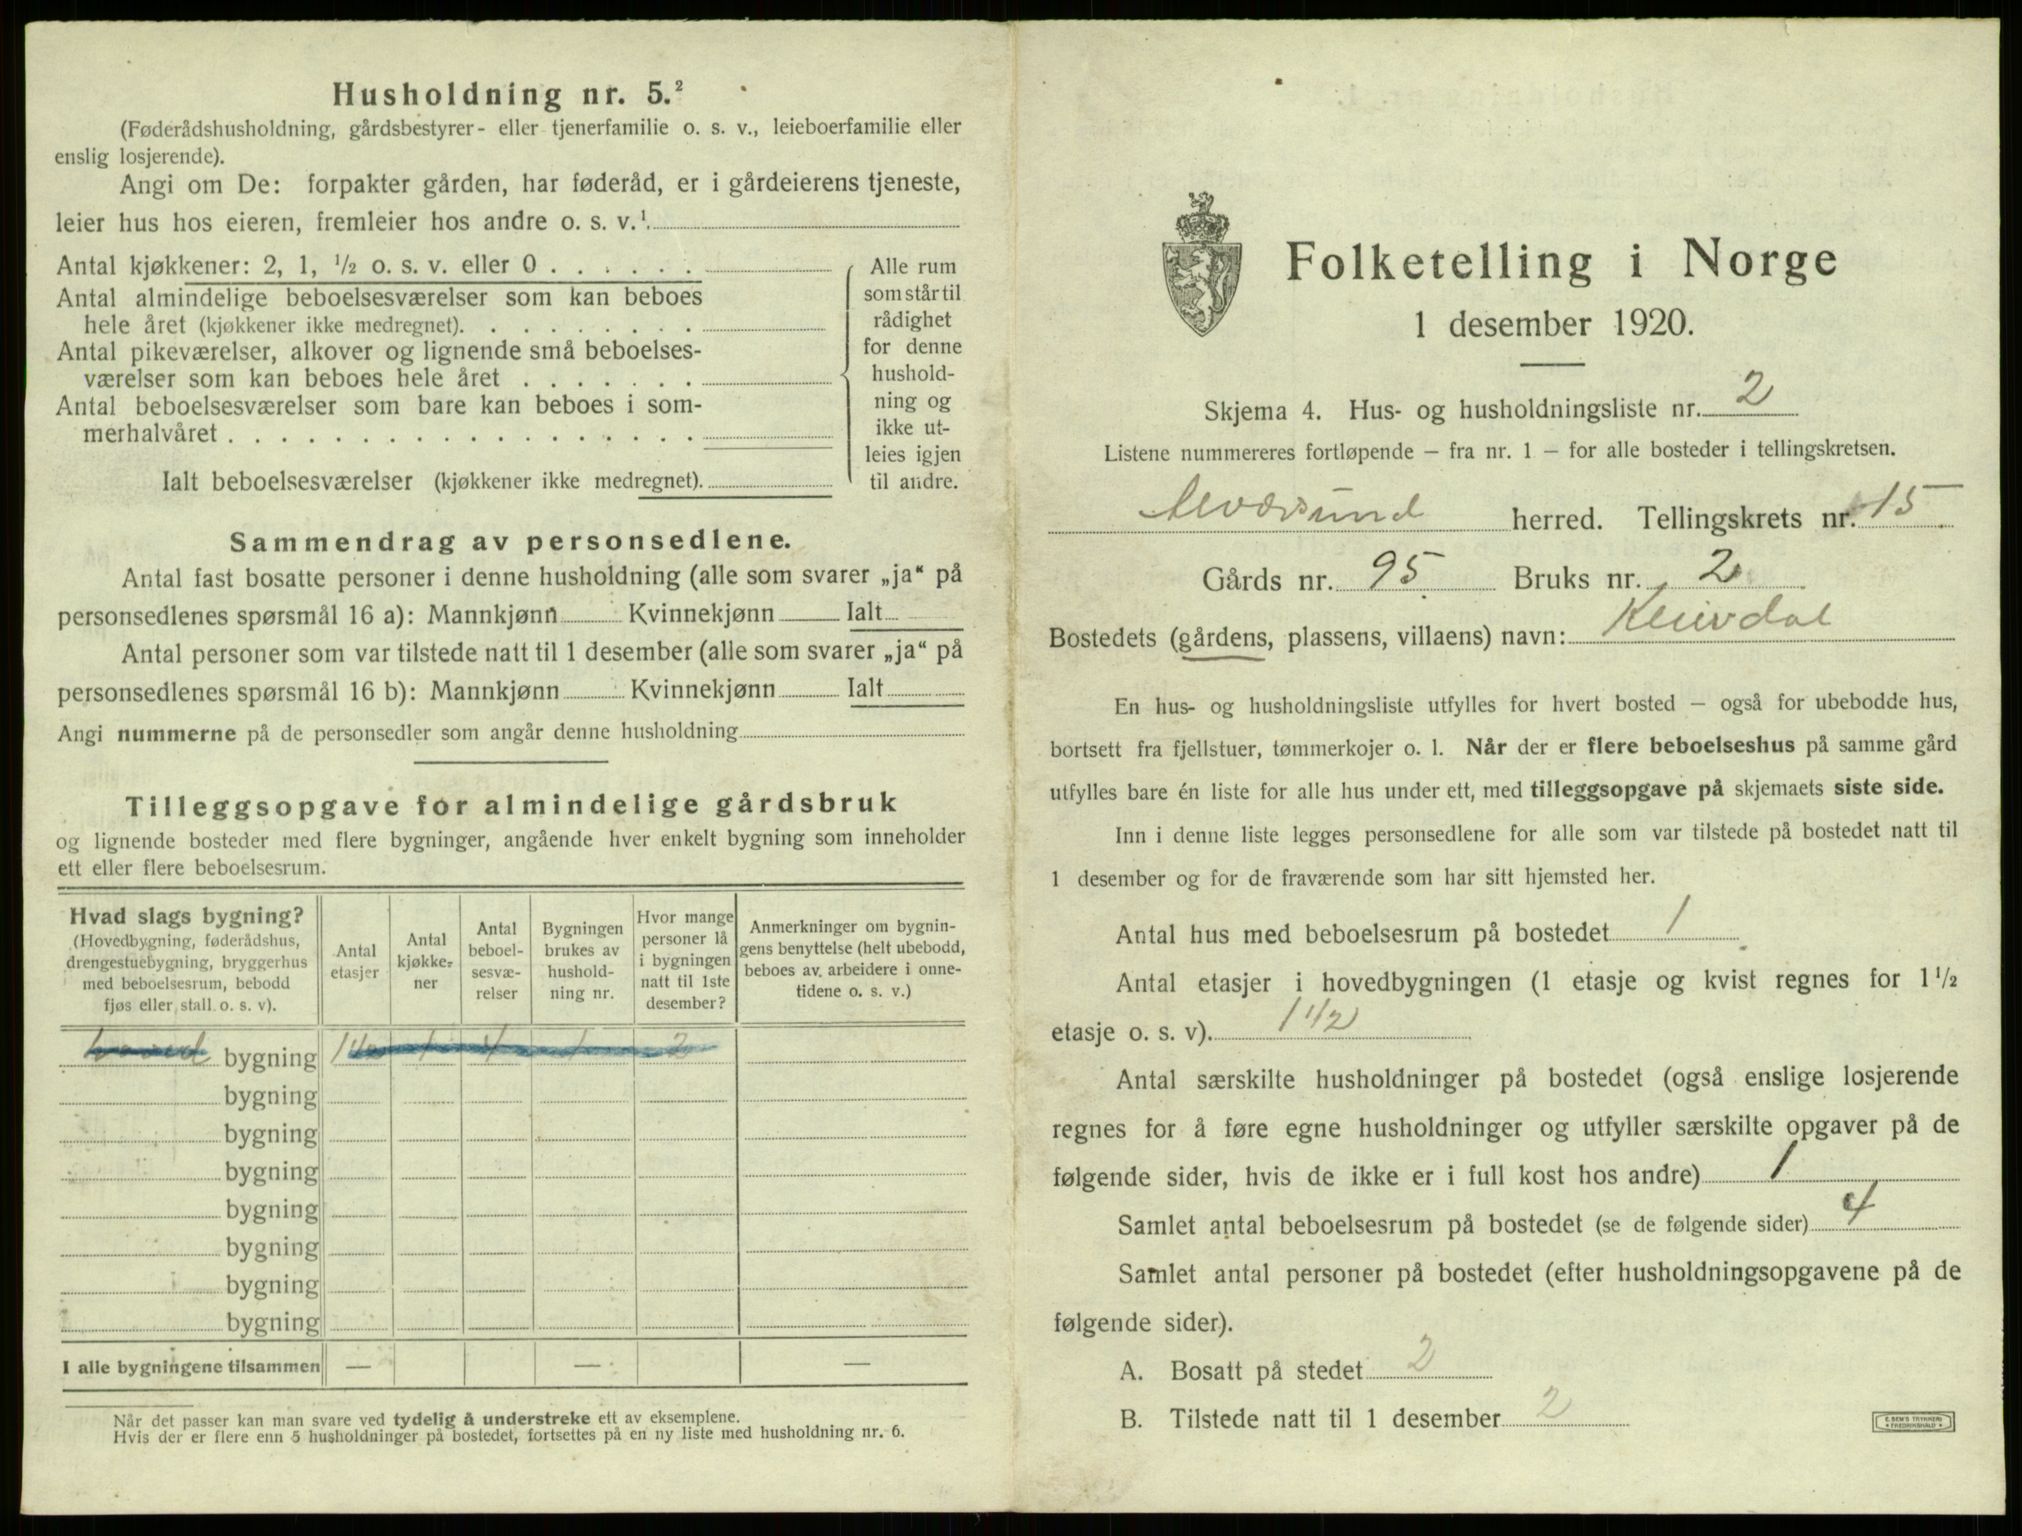 Husholdning nr. 5.²
(Føderådshusholdning, gårdsbestyrer- eller tjenerfamilie o. s. v., leieboerfamilie eller
enslig losjerende).
Angi om De: forpakter gården, har føderåd, er i gårdeierens tjeneste,
leier hus hos eieren, fremleier hos andre o. s. v.¹
Antal kjøkkener: 2, 1, ½ o. s. v. eller 0 . . . . . .
Antal almindelige beboelsesværelser som kan beboes
hele året (kjøkkener ikke medregnet). . . . . . . . .
Antal pikeværelser, alkover og lignende små beboelses-
værelser som kan beboes hele året . . . . . . .
Antal beboelsesværelser som bare kan beboes i som-
merhalvåret . . . . . . . . . . . . . . . . . .
Ialt beboelsesværelser (kjøkkener ikke medregnet).
Alle rum
som står til
rådighet
for denne
hushold-
ning og
ikke ut-
leies igjen
til andre.
Sammendrag av personsedlene.
Antal fast bosatte personer i denne husholdning (alle som svarer „ja“ på
personsedlenes spørsmål 16 a): Mannkjønn Kvinnekjønn Ialt
Antal personer som var tilstede natt til 1 desember (alle som svarer „ja“ på
personsedlenes spørsmål 16 b): Mannkjønn Kvinnekjønn Ialt
Angi nummerne på de personsedler som angår denne husholdning
Tilleggsopgave for almindelige gårdsbruk
og lignende bosteder med flere bygninger, angående hver enkelt bygning som inneholder
ett eller flere beboelsesrum.
Hvad slags bygning?
(Hovedbygning, føderådshus,
drengestuebygning, bryggerhus
med beboelsesrum, bebodd
fjøs eller stall o. s. v).
Antal
etasjer
Antal
kjøkke-
ner
Antal
beboel-
sesvæ-
relser
Bygningen
brukes av
hushold-
ning nr.
Hvor mange
personer lå
i bygningen
natt til 1ste
desember?
Anmerkninger om bygnin-
gens benyttelse (helt ubebodd,
beboes av arbeidere i onne-
tidene o. s. v.)
hoved bygning 1½ 1 4 1 2
bygning
bygning
bygning
bygning
bygning
bygning
bygning
I alle bygningene tilsammen — — —
Når det passer kan man svare ved tydelig å understreke ett av eksemplene.
Hvis der er flere enn 5 husholdninger på bostedet, fortsettes på en ny liste med husholdning nr. 6.
Folketelling i Norge
1 desember 1920.
Skjema 4. Hus- og husholdningsliste nr. 2
Listene nummereres fortløpende – fra nr. 1 – for alle bosteder i tellingskretsen.
Alversund herred. Tellingskrets nr. 15
Gårds nr. 95 Bruks nr. 2
Bostedets (gårdens, plassens, villaens) navn: Kleivdal
En hus- og husholdningsliste utfylles for hvert bosted – også for ubebodde hus,
bortsett fra fjellstuer, tømmerkojer o. l. Når der er flere beboelseshus på samme gård
utfylles bare én liste for alle hus under ett, med tilleggsopgave på skjemaets siste side.
Inn i denne liste legges personsedlene for alle som var tilstede på bostedet natt til
1 desember og for de fraværende som har sitt hjemsted her.
Antal hus med beboelsesrum på bostedet 1
Antal etasjer i hovedbygningen (1 etasje og kvist regnes for 1½
etasje o. s. v). 1½
Antal særskilte husholdninger på bostedet (også enslige losjerende
regnes for å føre egne husholdninger og utfyller særskilte opgaver på de
følgende sider, hvis de ikke er i full kost hos andre) 1
Samlet antal beboelsesrum på bostedet (se de følgende sider) 4
Samlet antal personer på bostedet (efter husholdningsopgavene på de
følgende sider).
A. Bosatt på stedet 2
B. Tilstede natt til 1 desember 2
E. SEM'S TRYKKERI
FREDRIKSHALD